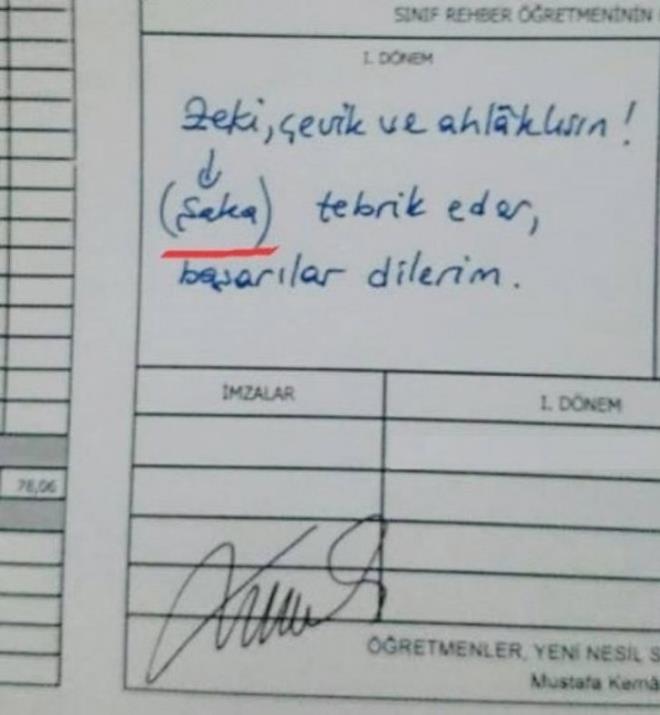 SINIF REHBER ÖĞRETMENİNİN
I. DÖNEM
Zeki, çevik ve ahlâklısın!
(Şaka) tebrik eder,
başarılar dilerim.
İMZALAR
I. DÖNEM
78,06
ÖĞRETMENLER, YENİ NESİL S
Mustafa Kemâ